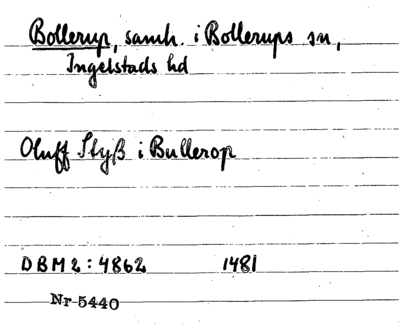 Bollerup, samh. i Bollerups sn,
Ingelstads hd
Oluff Styß i Bullerop
DBM2:4862 1481
Nr 5440